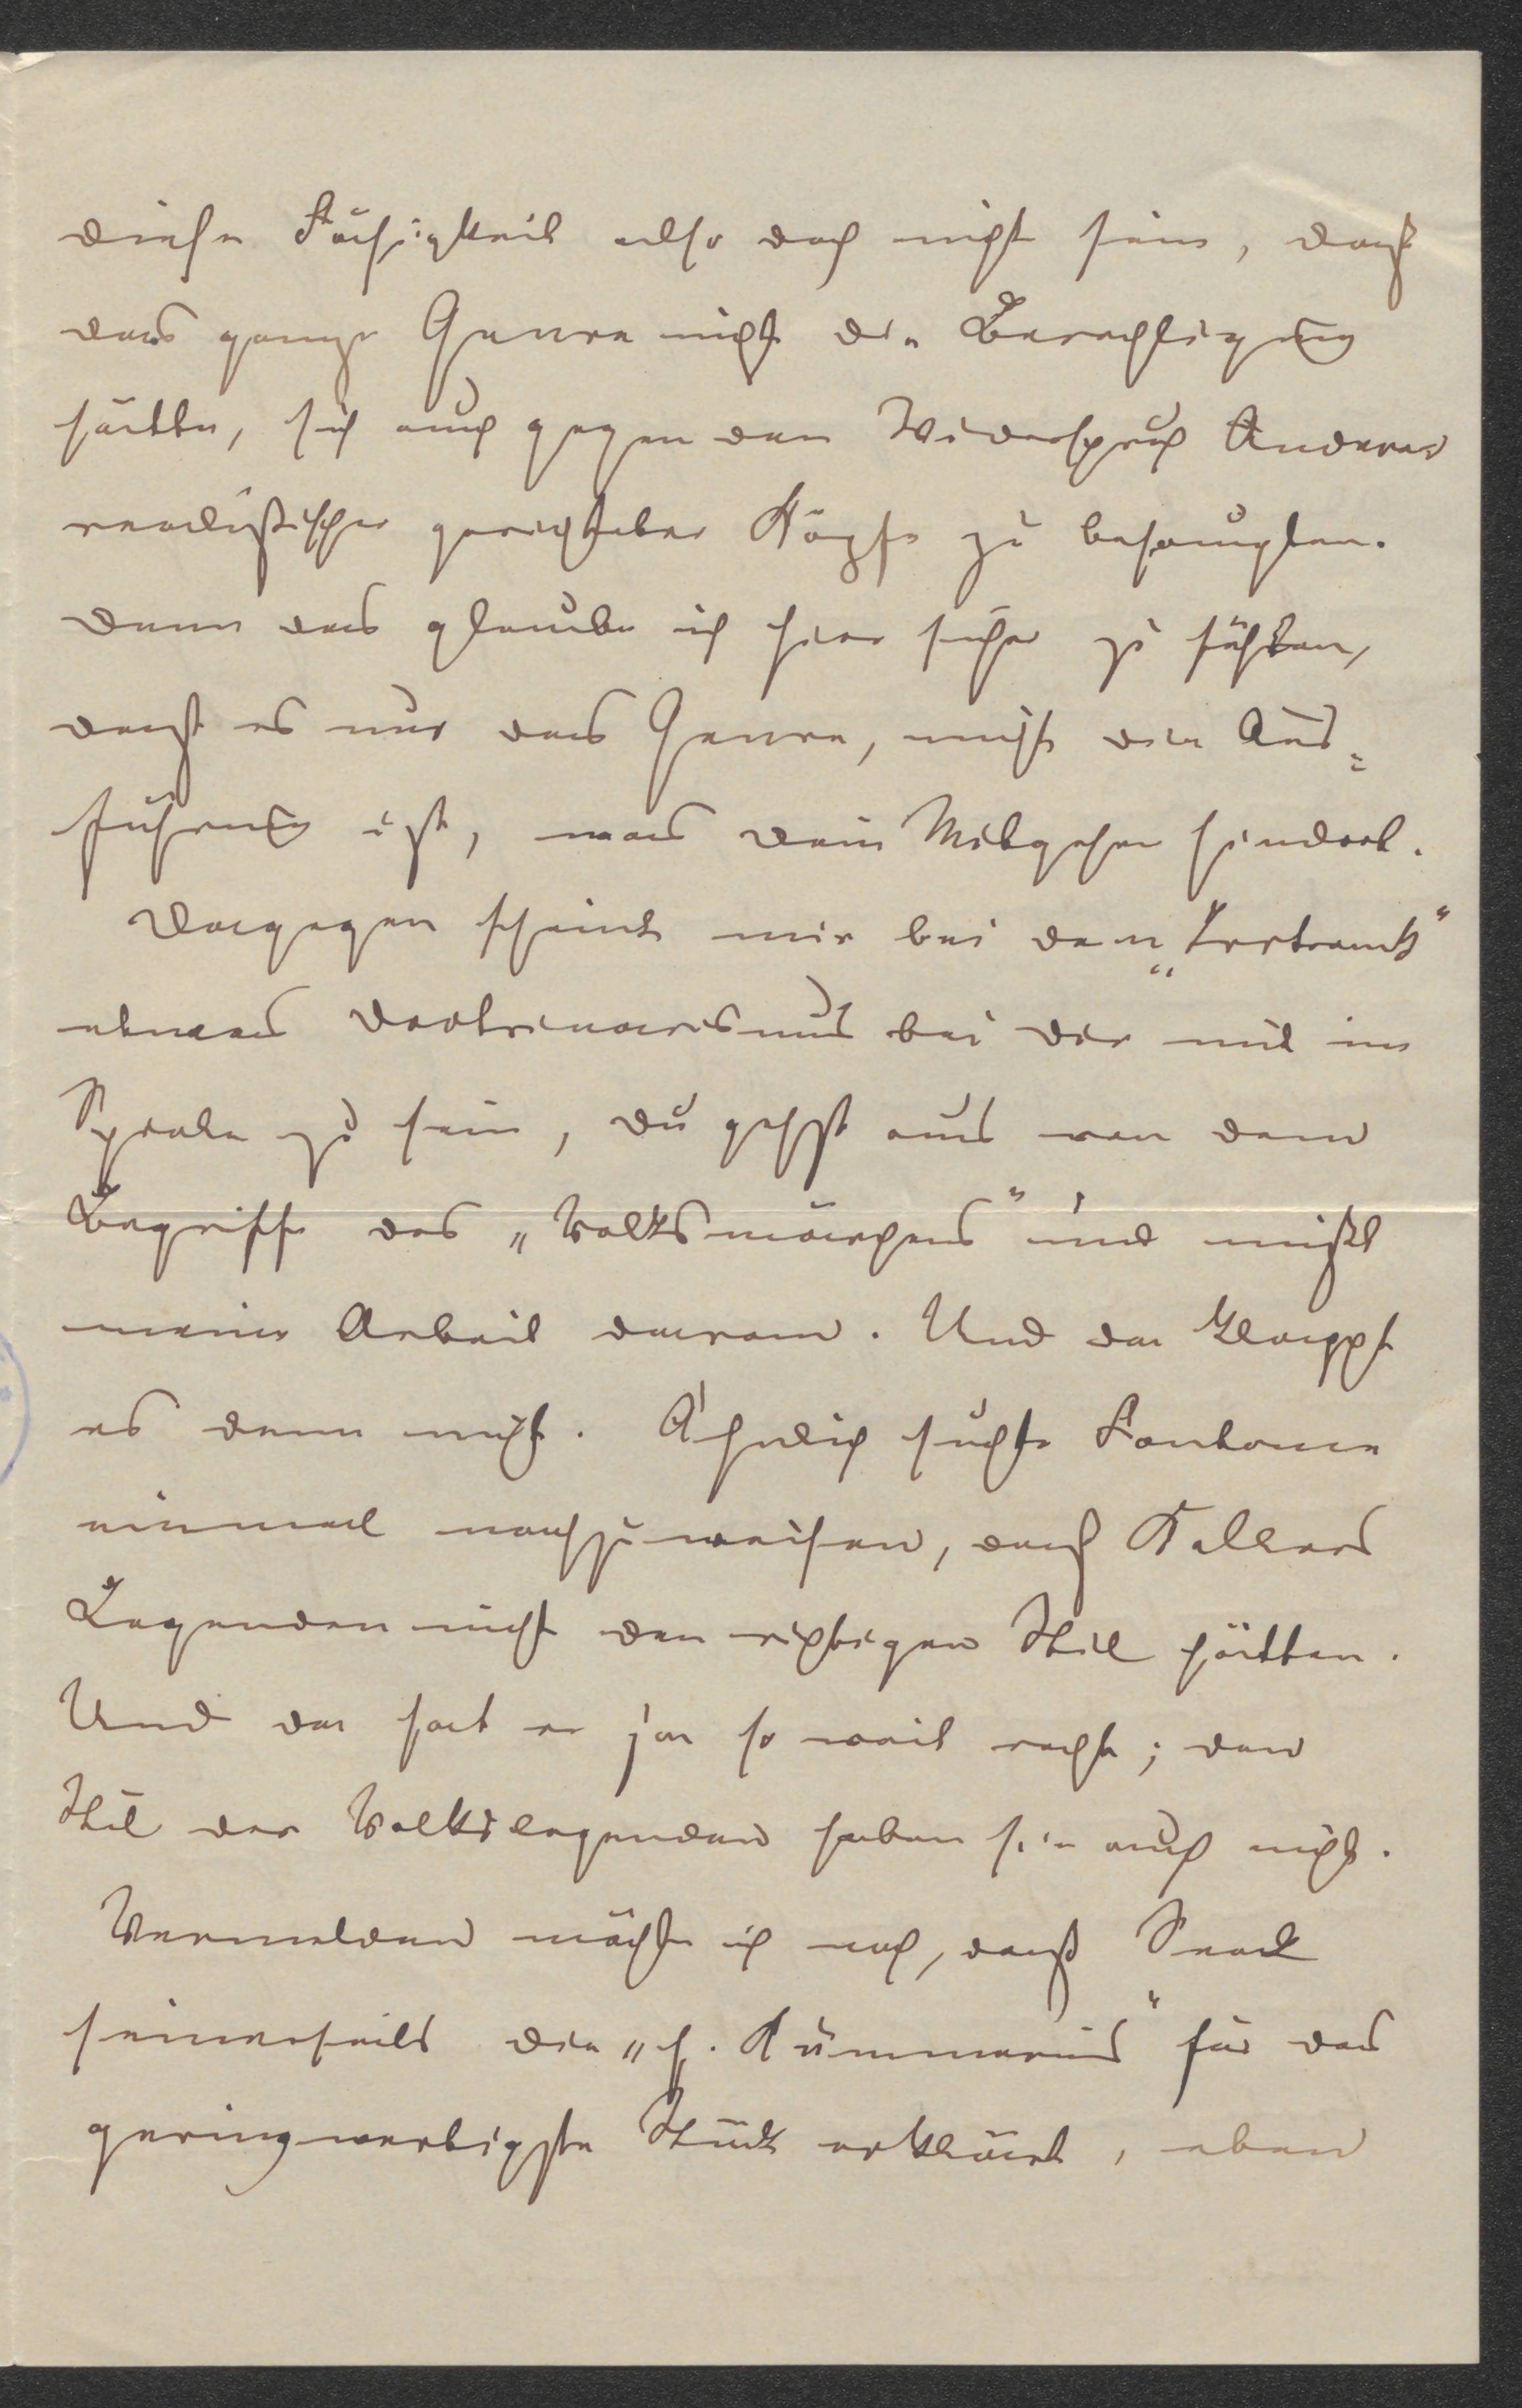 diese Fähigkeit also doch nicht sein, daß
das ganze Genre nicht die Berechtigung
hätte, sich auch gegen den Widerspruch Anderer
realistischer gerichteter Köpfe zu behaupten.
Denn das glaube ich hier sicher zu fühlen,
daß es nur das Genre, nicht die Aus-
führung ist, was dein Mitgehen hindert.
Dagegen scheint mir bei dem „Irrtrank“
etwas Doctrinarismus bei dir mit im
Spiele zu sein, du gehst aus von dem
Begriffe des „Volksmärchens“ und mißt
meine Arbeit daran. Und da klappt
es denn nicht. Ähnlich suchte Fontane
einmal nachzuweisen, daß Kellers
Legenden nicht den richtigen Stil hätten.
Und da hat er ja so weit recht; den
Stil der Volkslegenden haben sie auch nicht.
Vermelden möchte ich noch, daß
seinerseits die „h. Kümmernis“ für das
geringwertigste Stück erklärt, eben